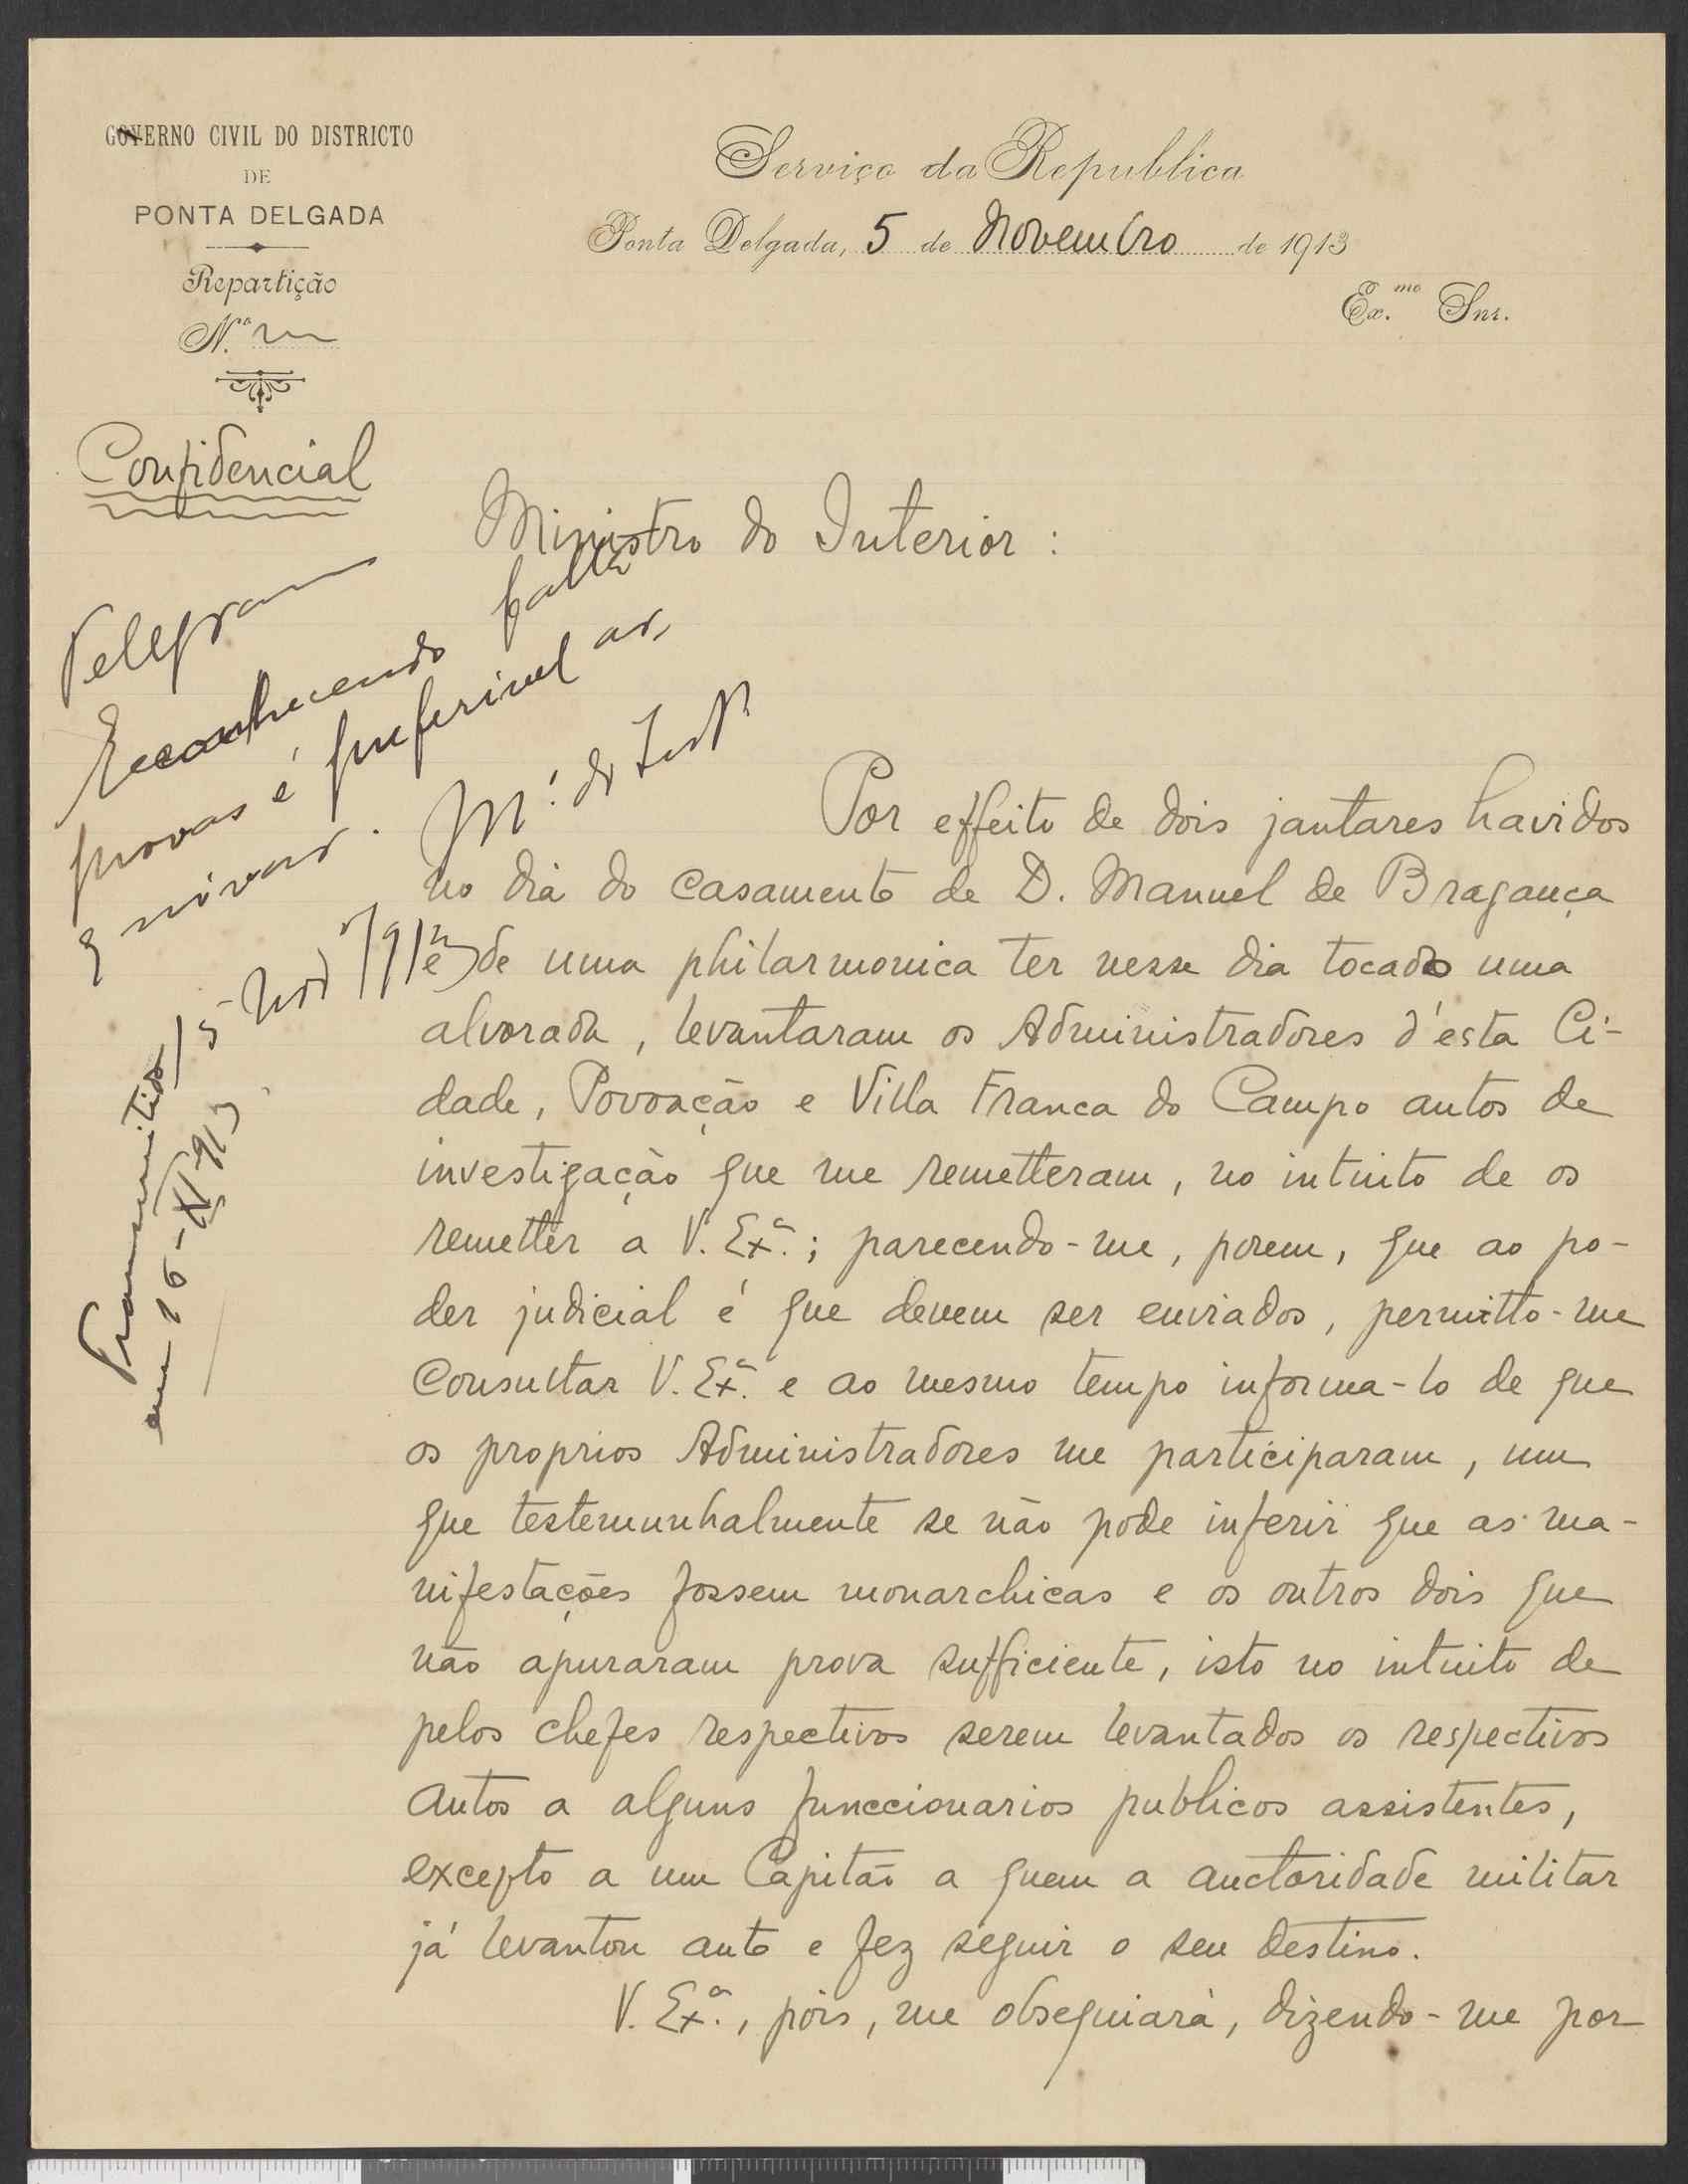 GOVERNO CIVIL DO DISTRICTO
DE
PONTA DELGADA
Repartição
N.º
Confidencial
Serviço da Republica
Ponta Delgada, 5 de Novembro de 1913
Ex.mo Snr.
Ministro do Interior :
Telegram
Reconhecendo falta
provas é preferivel
Transmittido
em 16-XI-913
Por effeito de dois jantares havidos
no dia do casamento de D. Manuel de Bragança
e de uma philarmonica ter nesse dia tocado uma
alvorada, levantaram os Administradores d'esta Ci-
dade, Povoação e Villa Franca do Campo autos de
investigação que me remetteram, no intuito de os
remetter a V. Ex.ª; parecendo-me, porem, que ao po-
der judicial é que devem ser enviados, permitto-me
consultar V. Ex.ª e ao mesmo tempo informa-lo de que
os proprios Administradores me participaram, um
que testemunhalmente se não pode inferir que as ma-
nifestações fossem monarchicas e os outros dois que
não apuraram prova sufficiente, isto no intuito de
pelos chefes respectivos serem levantados os respectivos
autos a alguns funccionarios publicos assistentes,
excepto a um Capitão a quem a auctoridade militar
já levantou auto e fez seguir o seu destino.
V. Ex.ª, pois, me obsequiará, dizendo-me por